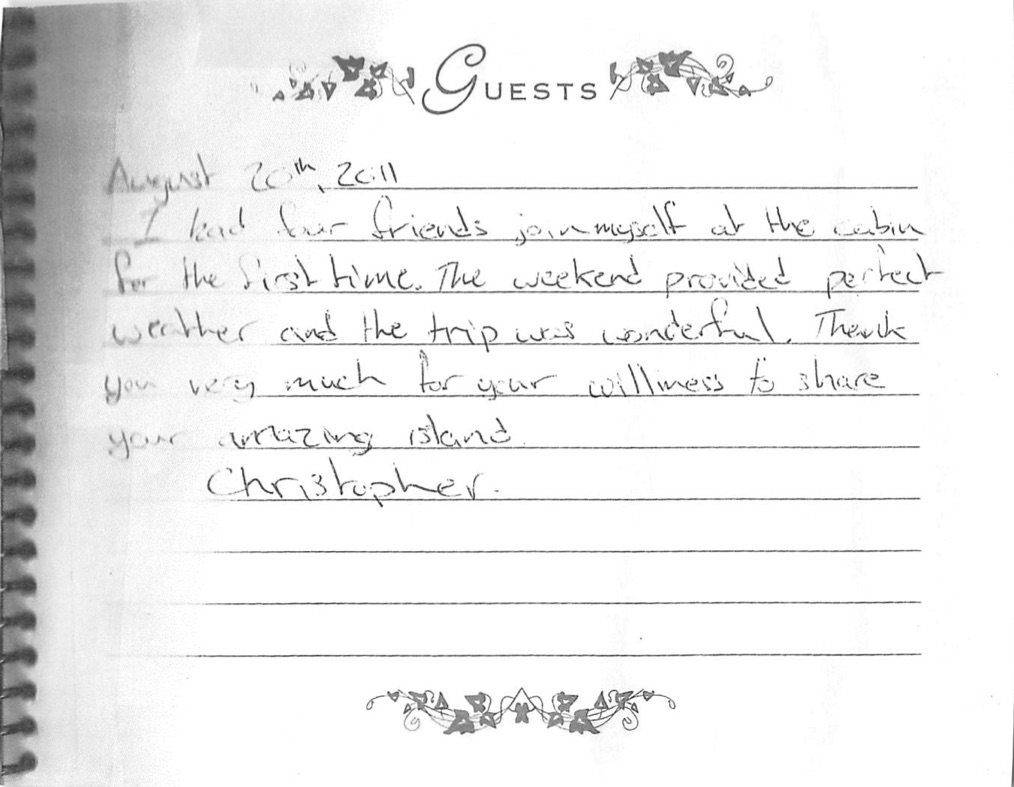 GUESTS
August 20th, 2011
I had four friends join myself at the cabin
for the first time. The weekend provided perfect
weather and the trip was wonderful. Thank
you very much for your williness to share
your amazing island.
Christopher.